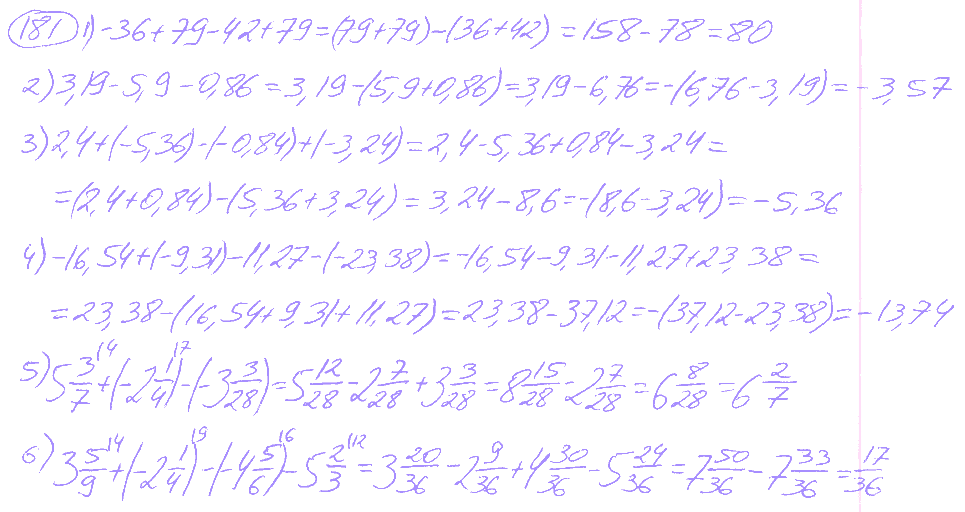 181 1) -36+79-42+79=(79+79)-(36+42)=158-78=80
2) 3,19-5,9-0,86=3,19-(5,9+0,86)=3,19-6,76=-(6,76-3,19)=-3,57
3) 2,4+(-5,36)-(-0,84)+(-3,24)=2,4-5,36+0,84-3,24=
=(2,4+0,84)-(5,36+3,24)=3,24-8,6=-(8,6-3,24)=-5,36
4) -16,54+(-9,31)-11,27-(-23,38)=-16,54-9,31-11,27+23,38=
=23,38-(16,54+9,31+11,27)=23,38-37,12=-(37,12-23,38)=-13,74
5) 5 3/7 \4 +(-2 1/4) \7 -(-3 3/28)=5 12/28-2 7/28+3 3/28=8 15/28-2 7/28=6 8/28=6 2/7
6) 3 5/9 \4 +(-2 1/4) \9 -(-4 5/6) \6 -5 2/3 \12 =3 20/36-2 9/36+4 30/36-5 24/36=7 50/36-7 33/36=17/36